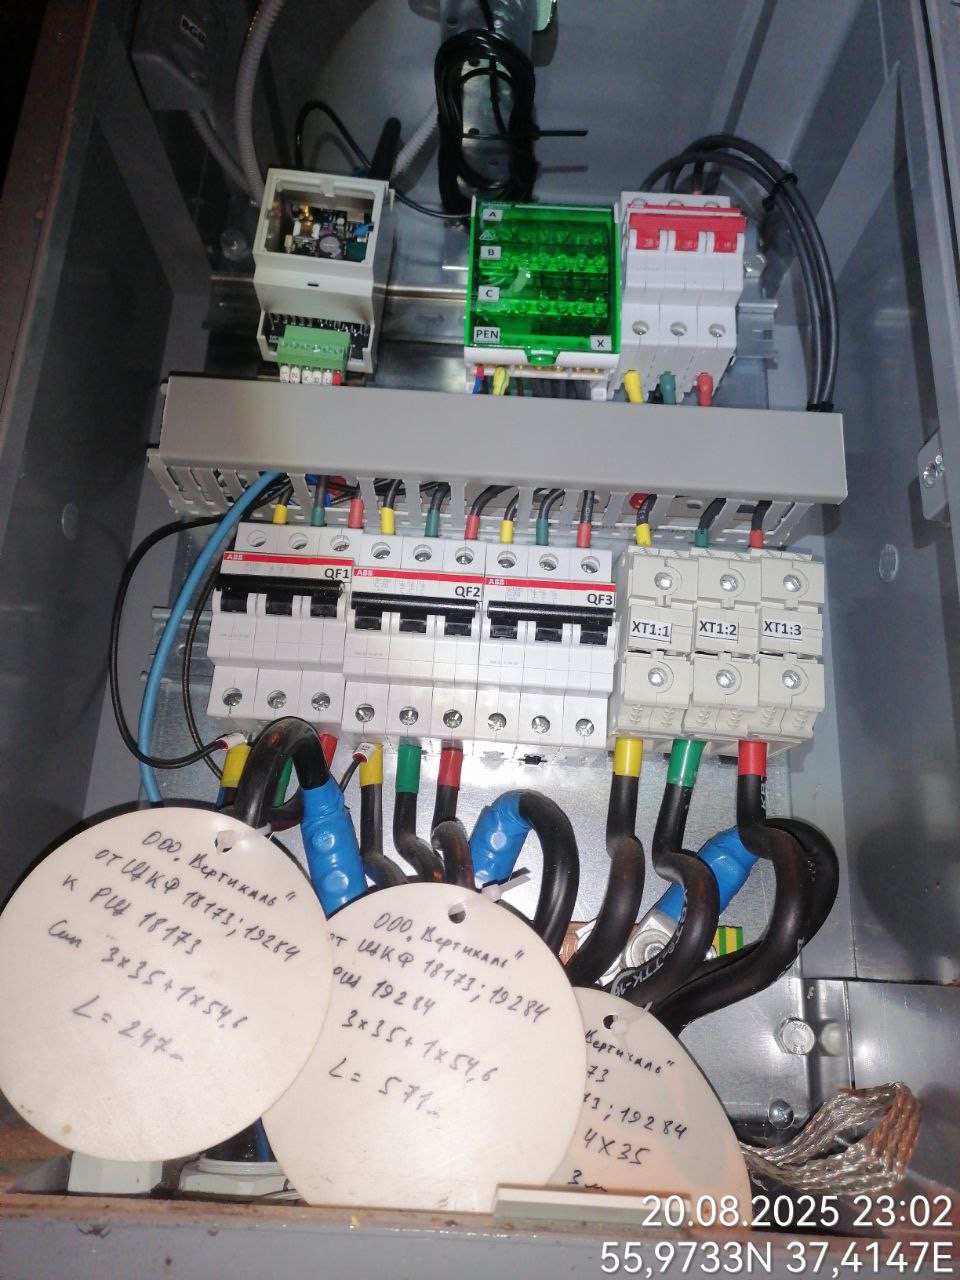 A
B
C
PEN
X
ABB
QF1
ABB
QF2
ABB
QF3
XT1:1
XT1:2
XT1:3
ООО "Вертикаль"
от ЩКФ 18173; 19284
к РЩ 18173
Сип 3х35+1х54,6
L = 247м
ООО "Вертикаль"
от ЩКФ 18173; 19284
РЩ 19284
3х35+1х54,6
L = 571м
Вертикаль"
73
73; 19284
4х35
3м
20.08.2025 23:02
55,9733N 37,4147E